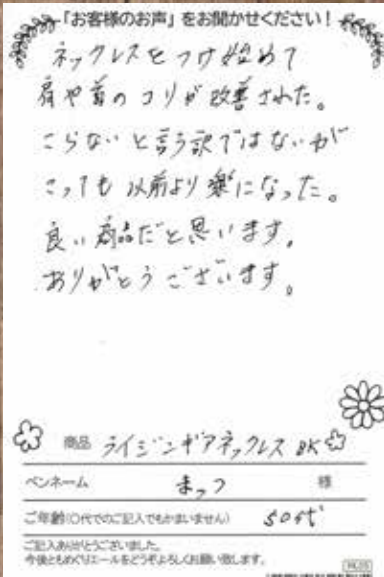 「お客様のお声」をお聞かせください！
ネックレスをつけ始めて
肩や首のコリが改善された。
こらないと言う訳ではないが
こっても以前より楽になった。
良い商品だと思います。
ありがとうございます。
商品 ライジンギアネックレス BK
ペンネーム まっつ 様
ご年齢(〇代でのご記入でもかまいません) 50代
ご記入ありがとうございました。
今後ともめぐりエールをどうぞよろしくお願い致します。